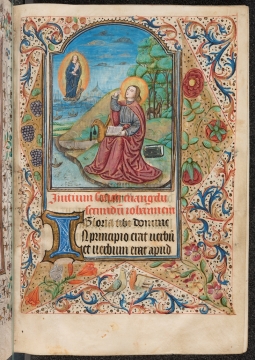 Initium sancti euangelii
secundum iohannem
Gloria tibi domine
IN principio erat uerbū
et uerbum erat apud